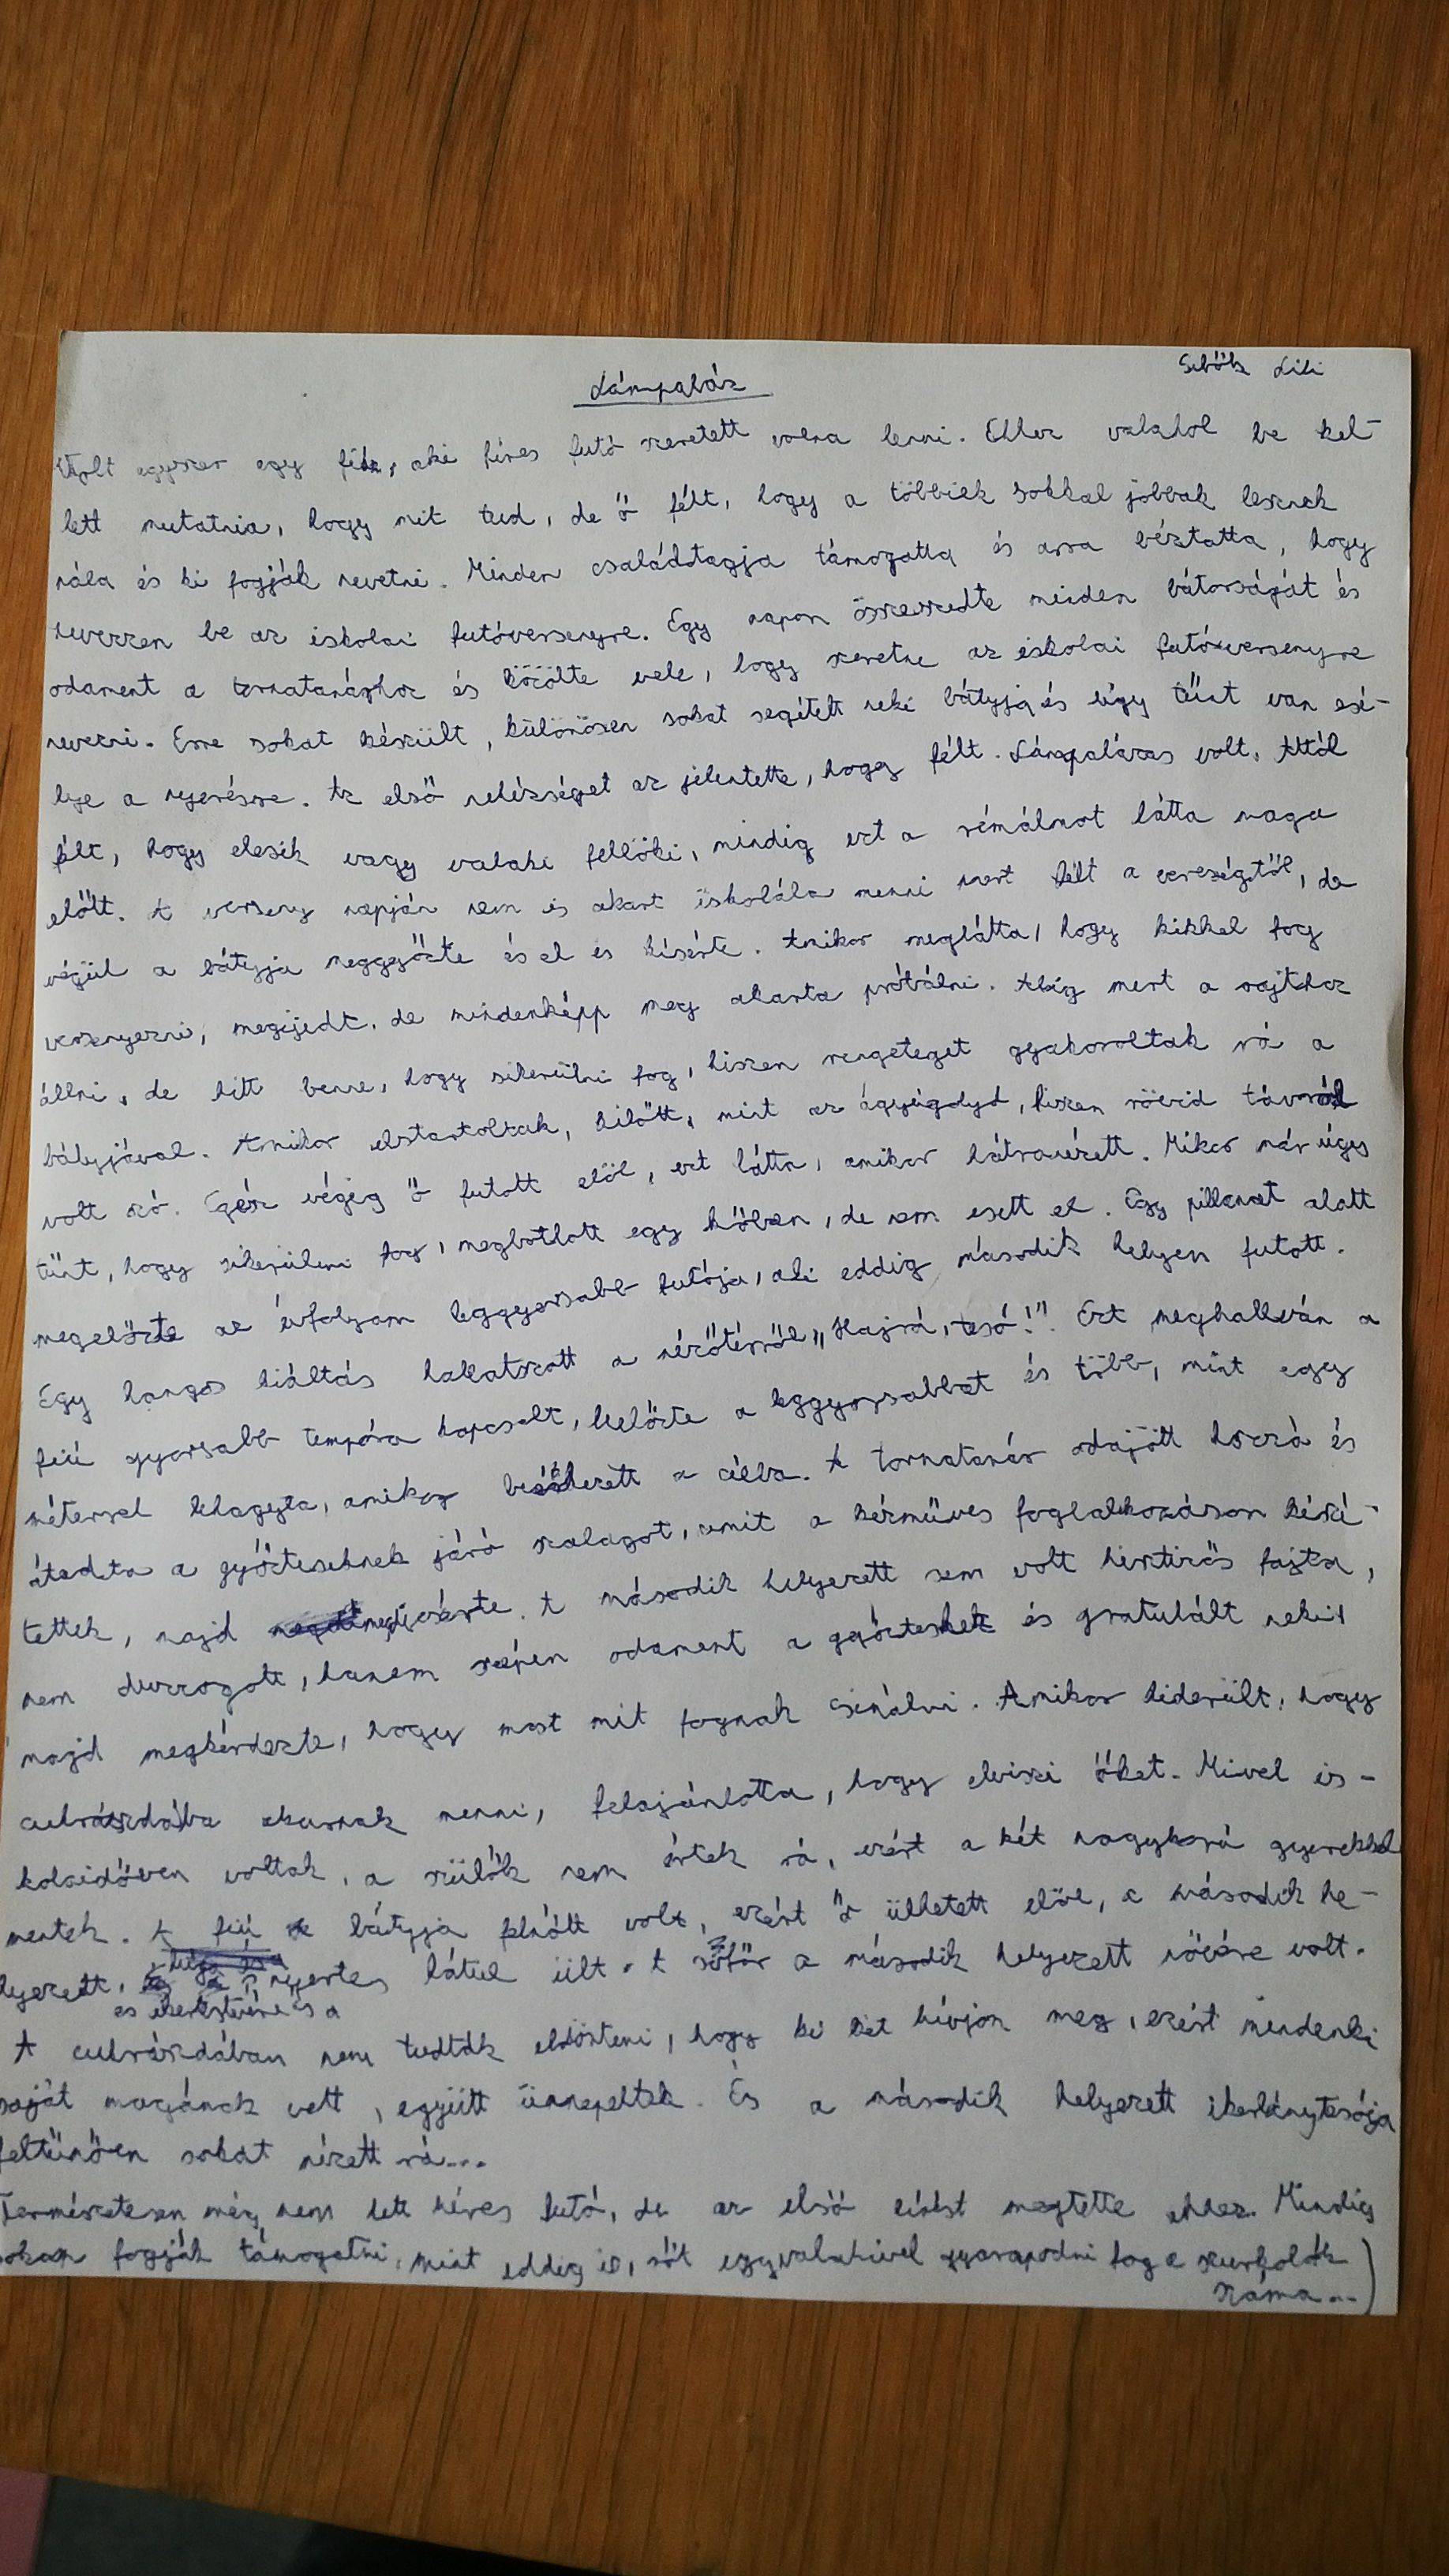 Sebők Lili
Lámpaláz
Volt egyszer egy fiú, aki híres futó szeretett volna lenni. Ehhez valahol be kel-
lett mutatnia, hogy mit tud, de ő félt, hogy a többiek sokkal jobbak lesznek
nála és ki fogják nevetni. Minden családtagja támogatta és arra bíztatta, hogy
nevezzen be az iskolai futóversenyre. Egy napon összeszedte minden bátorságát és
odament a tornatanárhoz és közölte vele, hogy szeretne az iskolai futóversenyre
nevezni. Erre sokat készült, különösen sokat segített neki bátyja és úgy tűnt van esé-
lye a nyerésre. Az első nehézséget az jelentette, hogy félt. Lámpalázas volt. Attól
félt, hogy elesik vagy valaki fellöki, mindig ezt a rémálmot látta maga
előtt. A verseny napján nem is akart iskolába menni mert félt a vereségtől, de
végül a bátyja meggyőzte és el is kísérte. Amikor meglátta, hogy kikkel fog
versenyezni, megijedt, de mindenképp meg akarta próbálni. Alig mert a rajthoz
állni, de hitt benne, hogy sikerülni fog, hiszen rengeteget gyakoroltak rá a
bátyjával. Amikor elstartoltak, kilőtt, mint az ágyúgolyó, hiszen rövid távról
volt szó. Egész végig ő futott elöl, ezt látta, amikor hátranézett. Mikor már úgy
tűnt, hogy sikerülni fog, megbotlott egy kőben, de nem esett el. Egy pillanat alatt
megelőzte az évfolyam leggyorsabb futója, aki eddig második helyen futott.
Egy hangos kiáltás hallatszott a nézőtérről „Hajrá, tesó!”. Ezt meghallván a
fiú gyorsabb tempóra kapcsolt, lelőzte a leggyorsabbat és több, mint egy
méterrel lehagyta, amikor beérkezett a célba. A tornatanár odajött hozzá és
átadta a győztesnek járó szalagot, amit a kézműves foglalkozáson készí-
tettek, majd megdícsérte. A második helyezett sem volt hisztizős fajta,
nem durrogott, hanem szépen odament a győzteshez és gratulált neki,
majd megkérdezte, hogy most mit fognak csinálni. Amikor kiderült, hogy
cukrászdába akarnak menni, felajánlotta, hogy elviszi őket. Mivel is-
kolaidőben voltak, a szülők nem értek rá, ezért a két nagykorú gyerekkel
mentek. A fiú bátyja felnőtt volt, ezért ő ülhetett elöl, a második he-
lyezett, és ikertestvére és a nyertes hátul ült. A sofőr a második helyezett nővére volt.
A cukrászdában nem tudták eldönteni, hogy ki kit hívjon meg, ezért mindenki
saját magának vett, együtt ünnepeltek. És a második helyezett ikerlánytesója
feltűnően sokat nézett rá...
Természetesen még nem lett híres futó, de az első lépést megtette ehhez. Mindig
sokan fogják támogatni, mint eddig is, sőt egy valakivel gyarapodni fog a szurkolók
száma...)